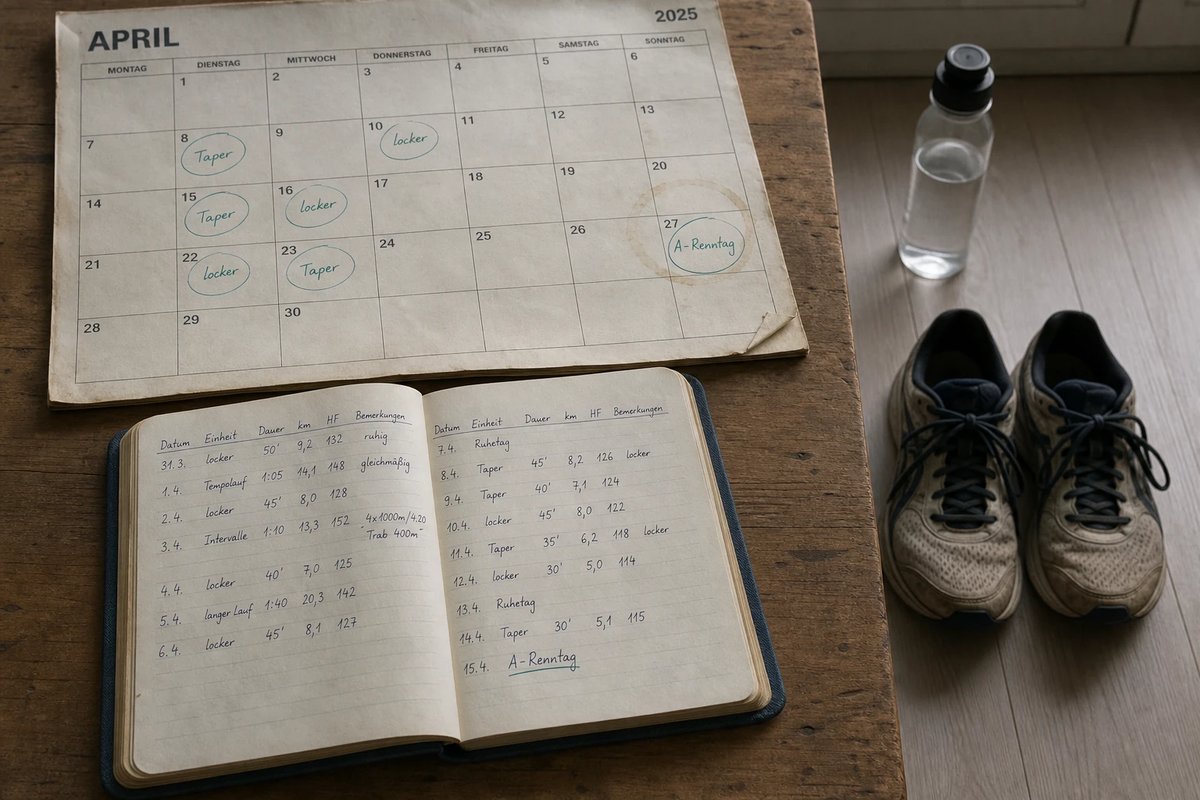 APRIL 2025
MONTAG DIENSTAG MITTWOCH DONNERSTAG FREITAG SAMSTAG SONNTAG
1 2 3 4 5 6
7 8 9 10 11 12 13
Taper locker
14 15 16 17 18 19 20
Taper locker
21 22 23 24 25 26 27
locker Taper A-Renntag
28 29 30
Datum Einheit Dauer km HF Bemerkungen
31.3. locker 50' 9,2 132 ruhig
1.4. Tempolauf 1:05 14,1 148 gleichmäßig
2.4. locker 45' 8,0 128
3.4. Intervalle 1:10 13,3 152 4x1000m/4.20
Trab 400m
4.4. locker 40' 7,0 125
5.4. langer Lauf 1:40 20,3 142
6.4. locker 45' 8,1 127
Datum Einheit Dauer km HF Bemerkungen
7.4. Ruhetag
8.4. Taper 45' 8,2 126 locker
9.4. Taper 40' 7,1 124
10.4. locker 45' 8,0 122
11.4. Taper 35' 6,2 118 locker
12.4. locker 30' 5,0 114
13.4. Ruhetag
14.4. Taper 30' 5,1 115
15.4. A-Renntag